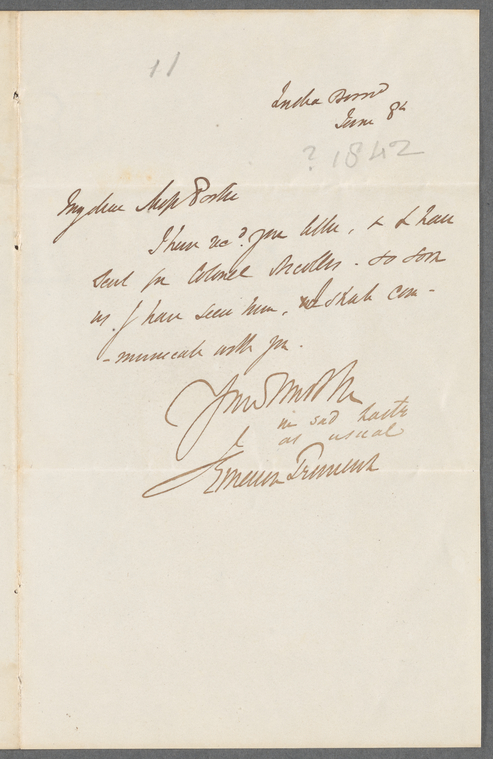 11
India Board
June 8th
? 1842
My dear Miss Porter
I have recd. your letter, & I have
sent for Colonel . So soon
as I have seen him, I shall com-
-municate with you.
Yours
in sad haste
as usual
J Emerson Tennent